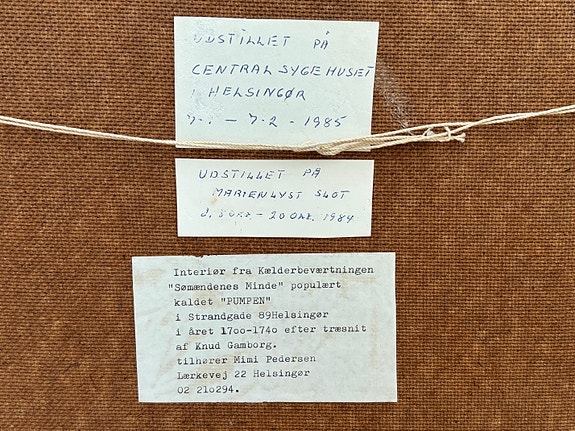 UDSTILLET PÅ
CENTRALSYGEHUSET
I HELSINGØR
7.1 - 7.2 - 1985
UDSTILLET PÅ
MARIENLYST SLOT
- 20 OKT. 1984
Interiør fra Kælderbeværtningen
"Sømændenes Minde" populært
kaldet "PUMPEN"
i Strandgade 89Helsingør
i året 17oo-174o efter træsnit
af Knud Gamborg.
tilhører Mimi Pedersen
Lærkevej 22 Helsingør
02 21o294.